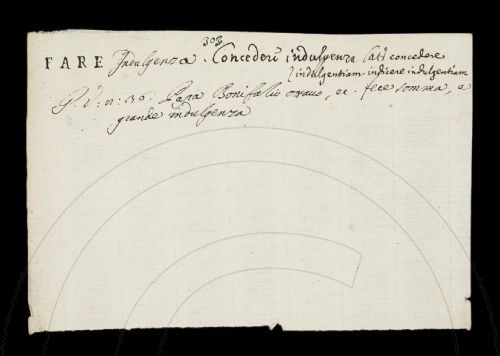 303
FARE Indulgenza. Concedere indulgenza lat: concedere
indulgentiam. indicere indulgentiam
G. V: n: 30. Papa Bonifazio ottavo, ec. fece somma, e
grande indulgenza